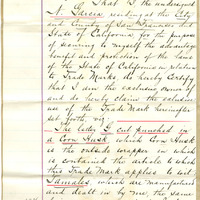 That I, the undersigned
N. Garcia, residing at the City
and County of San Francisco
State of California for the purpose
of securing to myself the advantage
benefit and provision of the laws
of the State of California relative
to Trade Marks, do hereby Certify
that I am the exclusive owner of
and do hereby claim the exclusive
use of the Trade Mark hereinafter
set forth, viz:
The letter G cut punched in
a Corn Husk which Corn Husk
is the outside wrapper in which
is contained the article to which
this Trade Mark applies to wit
Tamales, which are manufactured
and dealt in by me, the same